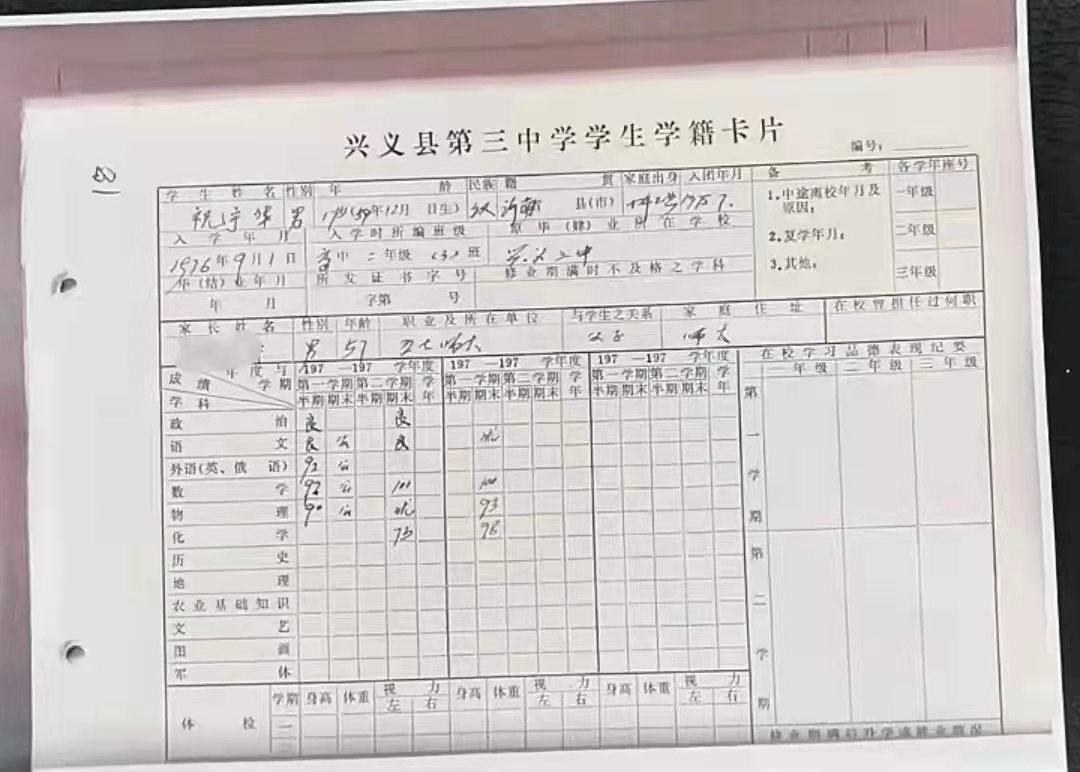 兴义县第三中学学生学籍卡片
编号：
学生姓名 性别 年龄 民族 籍贯 家庭出身 入团年月 备考 各学年座号
男 12月 日生) 汉 县(市)
1.中途离校年月及原因：
一年级
入学年月 入学时所编班级 原毕(肄)业所在学校
2.复学年月：
二年级
1976年9月1日 高中二年级(3)班
3.其他：
三年级
毕(结)业年月 所发证书字号 修业期满时不及格之学科
年 月 字第 号
家长姓名 性别 年龄 职业及所在单位 与学生之关系 家庭住址 在校曾担任过何职
男 57 父子 师大
年度与学期 成绩 学科
197 —197 学年度 197 —197 学年度 197 —197 学年度
第一学期 第二学期 学年 第一学期 第二学期 学年 第一学期 第二学期 学年
半期 期末 半期 期末 半期 期末 半期 期末 半期 期末 半期 期末
在校学习品德表现纪要
一年级 二年级 三年级
第一学期
第二学期
政治 良 良
语文 良 良 优
外语(英、俄语) 92
数学 92 100 100
物理 90 优 93
化学 98
历史
地理
农业基础知识
文艺
图画
军体
体检 学期 身高 体重 视力 左 右 身高 体重 视力 左 右 身高 体重 视力 左 右
一
修业期满后升学或就业情况